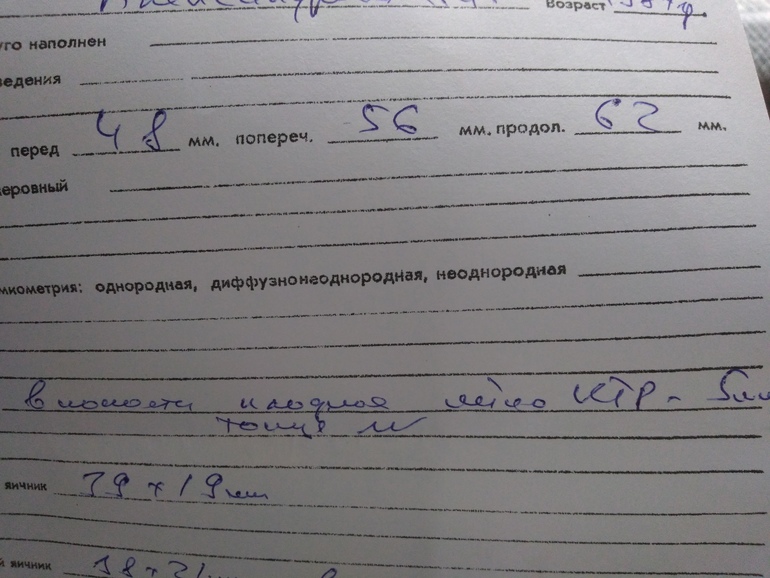 Возраст
уго наполнен
ведения
перед 48 мм. попереч. 56 мм. продол. 62 мм.
еровный
миометрия: однородная, диффузнонеоднородная, неоднородная
в полости плодное яйцо КТР - 5мм
тонус N
яичник 39 х 19 мм
й яичник 38 х 21